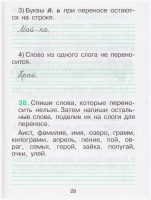 3) Буквы й, ь при переносе остают-
ся на строке.
Май-ка.
4) Слово из одного слога не перено-
сится.
Край.
38. Спиши слова, которые перено-
сить нельзя. Затем напиши осталь-
ные слова, поделив их на слоги для
переноса.
Аист, фамилия, имя, озеро, грамм,
килограмм, апрель, пение, пой, ов-
раг, семья, герой, зайка, попугай,
очки, улей.
29